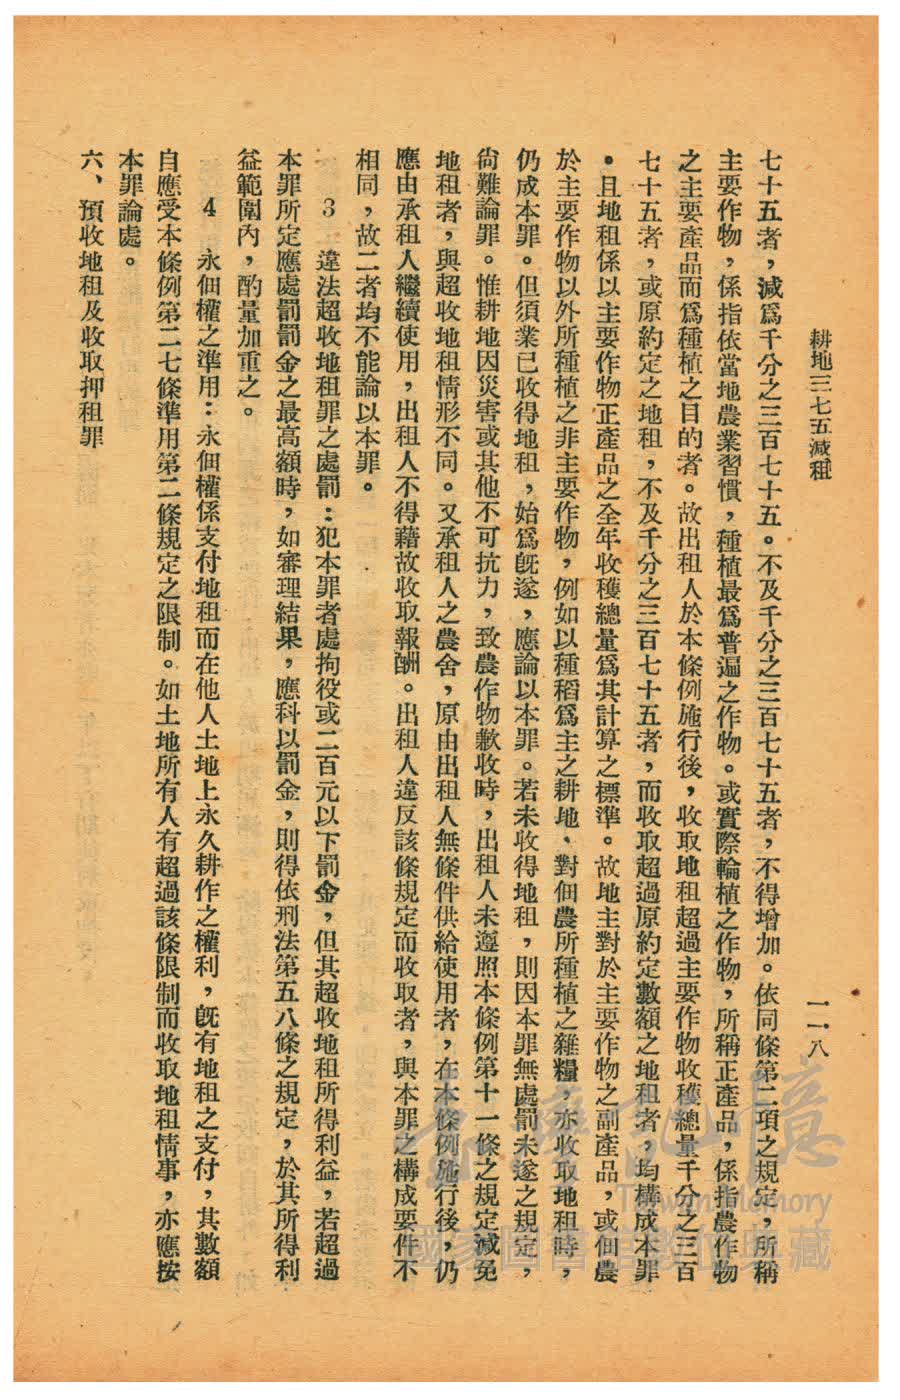 耕地三七五減租
一一八
七十五者，減爲千分之三百七十五。不及千分之三百七十五者，不得增加。依同條第二項之規定，所稱
主要作物，係指依當地農業習慣，種植最爲普遍之作物。或實際輪植之作物，所稱正產品，係指農作物
之主要產品而爲種植之目的者。故出租人於本條例施行後，收取地租超過主要作物收穫總量千分之三百
七十五者，或原約定之地租，不及千分之三百七十五者，而收取超過原約定數額之地租者，均構成本罪
。且地租係以主要作物正產品之全年收穫總量爲其計算之標準。故地主對於主要作物之副產品，或佃農
於主要作物以外所種植之非主要作物，例如以種稻爲主之耕地、對佃農所種植之雜糧，亦收取地租時，
仍成本罪。但須業已收得地租，始爲既遂，應論以本罪。若未收得地租，則因本罪無處罰未遂之規定，
尚難論罪。惟耕地因災害或其他不可抗力，致農作物歉收時，出租人未遵照本條例第十一條之規定減免
地租者，與超收地租情形不同。又承租人之農舍，原由出租人無條件供給使用者，在本條例施行後，仍
應由承租人繼續使用，出租人不得藉故收取報酬。出租人違反該條規定而收取者，與本罪之構成要件不
相同，故二者均不能論以本罪。
3　違法超收地租罪之處罰：犯本罪者處拘役或二百元以下罰金，但其超收地租所得利益，若超過
本罪所定應處罰罰金之最高額時，如審理結果，應科以罰金，則得依刑法第五八條之規定，於其所得利
益範圍內，酌量加重之。
4　永佃權之準用：永佃權係支付地租而在他人土地上永久耕作之權利，既有地租之支付，其數額
自應受本條例第二七條準用第二條規定之限制。如土地所有人有超過該條限制而收取地租情事，亦應按
本罪論處。
六、預收地租及收取押租罪
臺灣記憶
Taiwan Memory
國家圖書館數位典藏